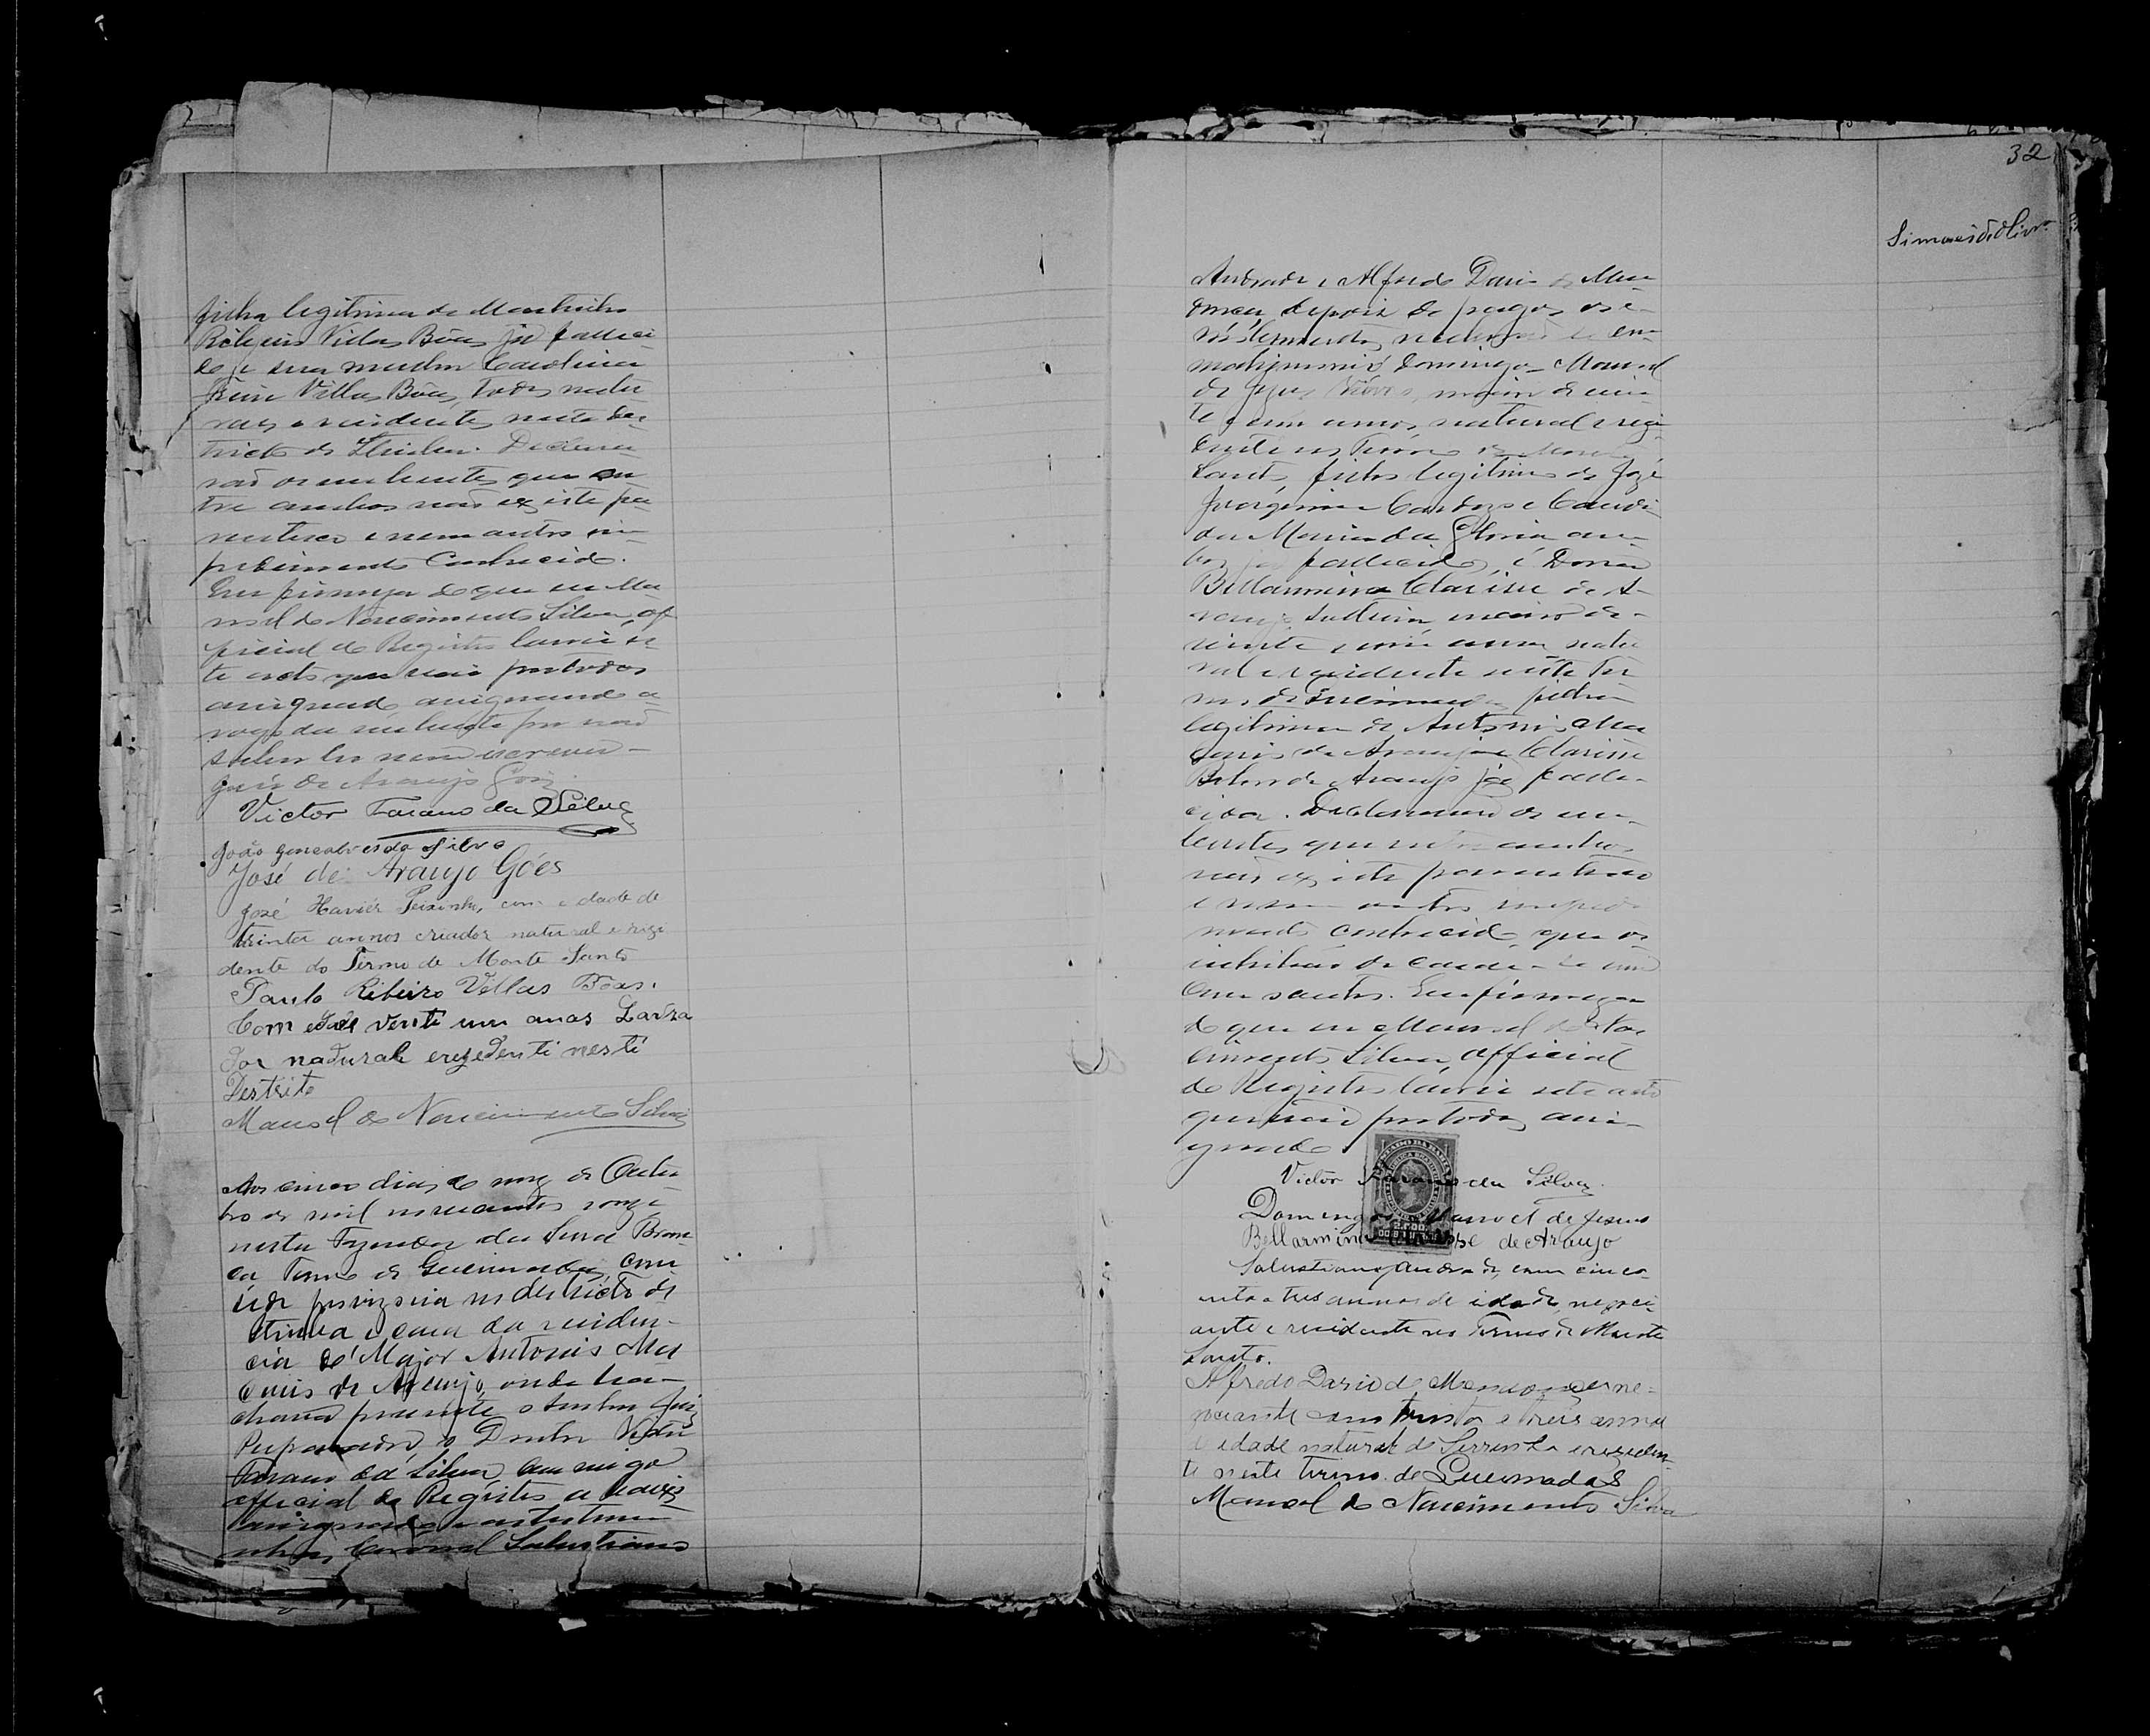 filha legitima de
Villas Bôas já falleci
do e sua mulher Carolina
Villas Bôas, todos natu
raes e residentes neste des
tricto de Itiuba. Declara
rão os nubentes que en
tre ambos não existe pa
rentesco e nem outro im
pedimento conhecido.
Em firmeza do que eu Ma
noel do Nascimento Silva, of
ficial do Registro lavrei es
te acto que vai por todos
assignado assignando a
rogo da nubente por não
saber ler nem escrever
José de Araujo Góes.
Victor Farano da Silva
João Gonçalves da Silva
José de Araujo Góes
José Xavier Peixinho, com idade de
trinta annos criador natural e rezi
dente do Termo de Monte Santo
Paulo Ribeiro Villas Bôas.
Com edade vente um anos Lavra
dor natural e rezedenti nesti
Destrito
Manoel do Nascimento Silva
Aos cinco dias do mez de Outu
bro de mil novecentos e onze
nesta Fazenda da Serra Bran
ca Termo de Queimadas, com
séde provizoria no destricto de
Itiuba e casa da residen-
cia do Major Antonio Ma
de Araujo, onde bea-
chava presente o senhor Juiz
Preparador, o Doutor Victor
Farano da Silva, commigo
official do Registro abaixo
assignado e as testemu
nhas, Coronel Salustiano
32
Simões d'Olivra
Andrade e Alfredo Dario de Men
donça, depois de pagos os e-
molumentos, receberão se em
matrimonio Domingos Manoel
de Jezus, maior de vin
te e um annos, natural e rezi
dente no Termo de Monte
Santo, filho legitimo de José
Cardozo e Candi
da Maria da Gloria am
bos já fallecidos, e Dona
Bellarmina Clarisse de A-
raujo solteira maior de
vinte e um annos natu
ral e rezidente neste Ter
mo de Queimadas filha
legitima de Antonio Ma
de Araujo e Clarisse
de Araujo já falle-
cida. Declararão os nu-
bentes que entre ambos
não existe parentesco
e nem outro impedi
mento conhecido que os
inhibão de casar-se um
com outro. Em firmeza
do que eu Manoel do Nas
cimento Silva, official
do Registro lavrei este acto
que vai por todos assi-
gnado
Victor Farano da Silva.
Domingos Manoel de Jesus
Bellarmina Clarisse de Araujo
Salustiano Andrade, com cinco-
enta e tres annos de idade, negoci
ante e residente no Termo de Monte
Santo.
Alfredo Dario de Mendonça ne-
gociante com trinta e treis annos
de idade natural de Serrinha e reziden
te neste termo de Queimadas
Manoel do Nascimento Silva